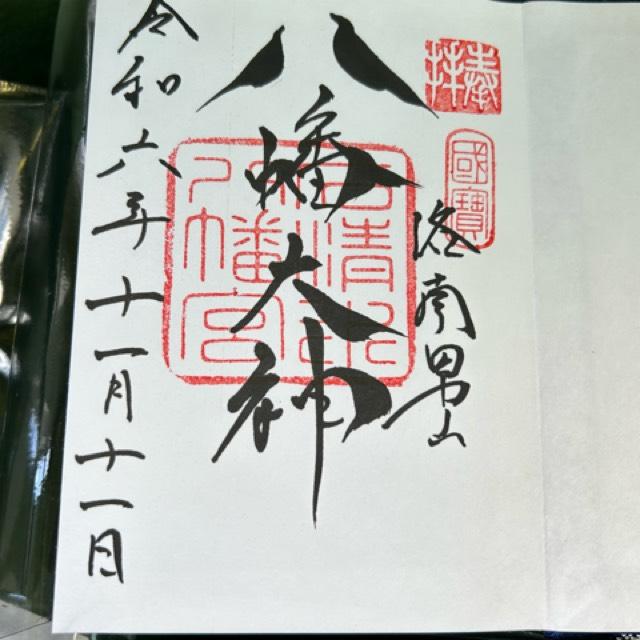 奉拝
國寶
洛南男山
八幡大神
石清水
八幡宮
令和六年十一月十一日